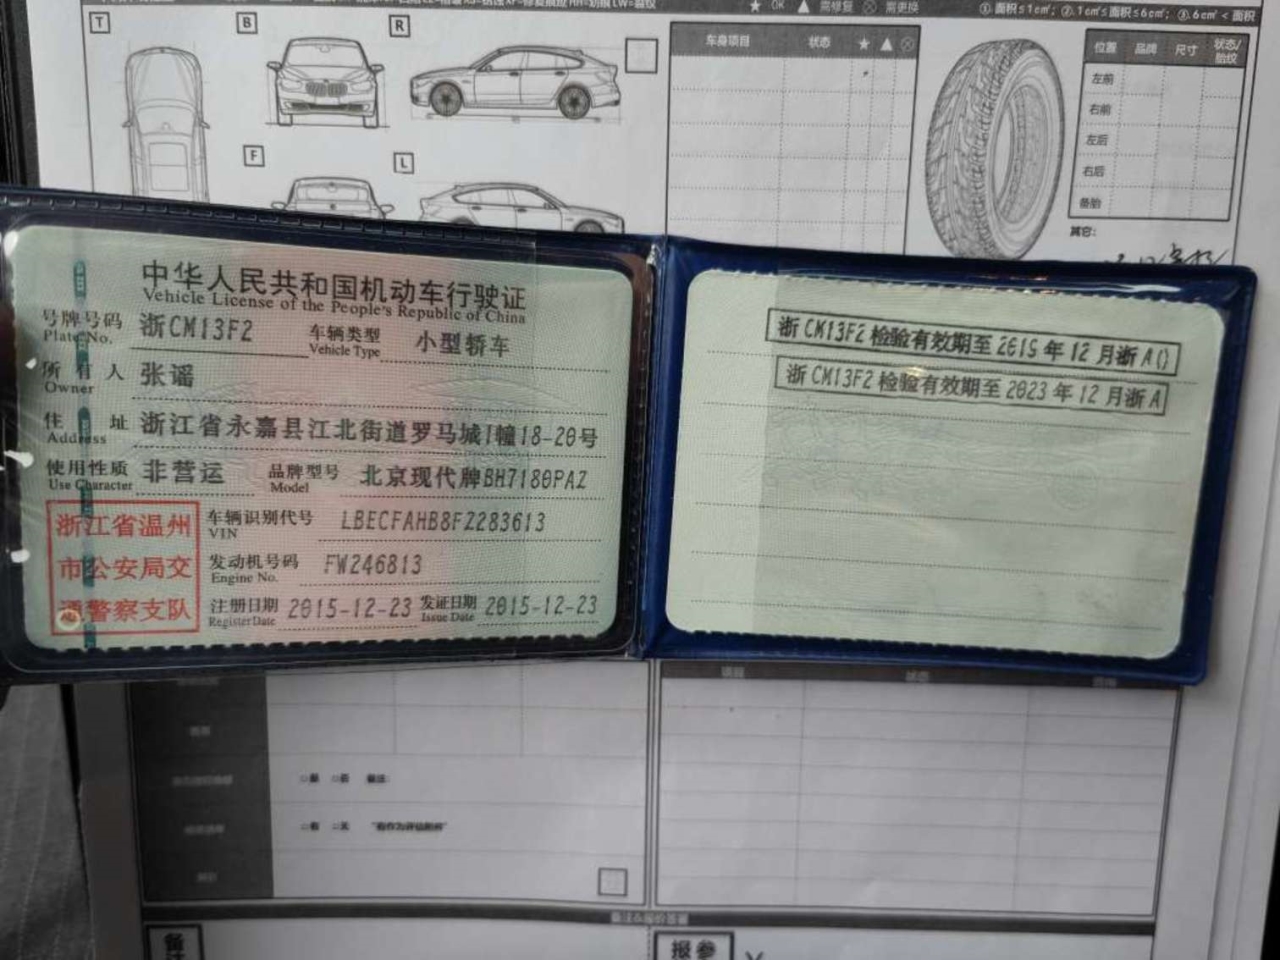 ★ OK ▲ 需修复 ⊗ 需更换
①.面积≤1c㎡; ②.1c㎡≤面积≤6c㎡; ③.6c㎡<面积
T
B
R
F
L
车身项目 状态 ★ ▲ ⊗
位置 品牌 尺寸 状态/胎纹
左前
右前
左后
右后
备胎
其它:
中华人民共和国机动车行驶证
Vehicle License of the People's Republic of China
号牌号码 浙CM13F2 车辆类型 小型轿车
Plate No. Vehicle Type
所有人 张谣
Owner
住址 浙江省永嘉县江北街道罗马城1幢18-20号
Address
使用性质 非营运 品牌型号 北京现代牌BH7180PAZ
Use Character Model
浙江省温州
市公安局交
通警察支队
车辆识别代号 LBECFAHB8FZ283613
VIN
发动机号码 FW246813
Engine No.
注册日期 2015-12-23 发证日期 2015-12-23
Register Date Issue Date
浙CM13F2检验有效期至 年12月浙A()
浙CM13F2检验有效期至2023年12月浙A
项目 状态
备注
报参